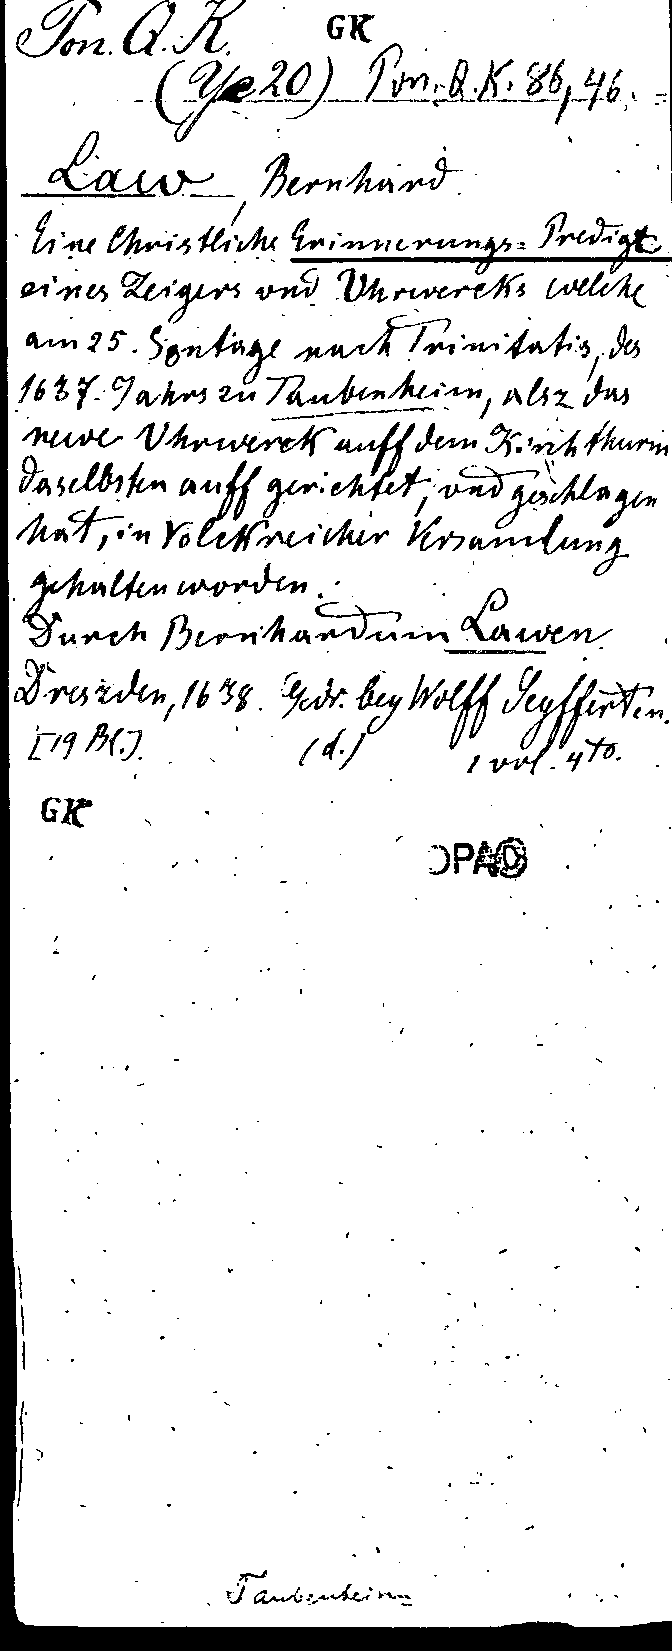 Pon. Q. K. GK
(Ye 20) Pon. Q. K. 86, 46.
Law, Bernhard
Eine Christliche Erinnerungs= Predigt
eines Zeigers vnd Vhrwercks welche
am 25. Sontage nach Trinitatis, des
1637. Jahrs zu Taubenheim, alsz das
newe Vhrwerck auff dem Kirchthurm
daselbsten auff gerichtet, vnd geschlagen
hat, in Volckreicher Versamlung
gehalten worden.
Durch Bernhardum Lawen
Dreszden, 1638. Gedr. bey Wolff Seyfferten.
[19 Bl.]. (d.) 1 vol. 4to.
GK
OPAC
Taubenheim